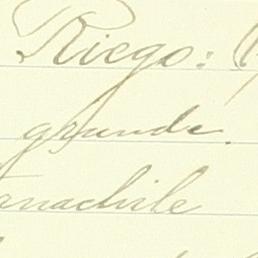 Riego:
grande.
anachile